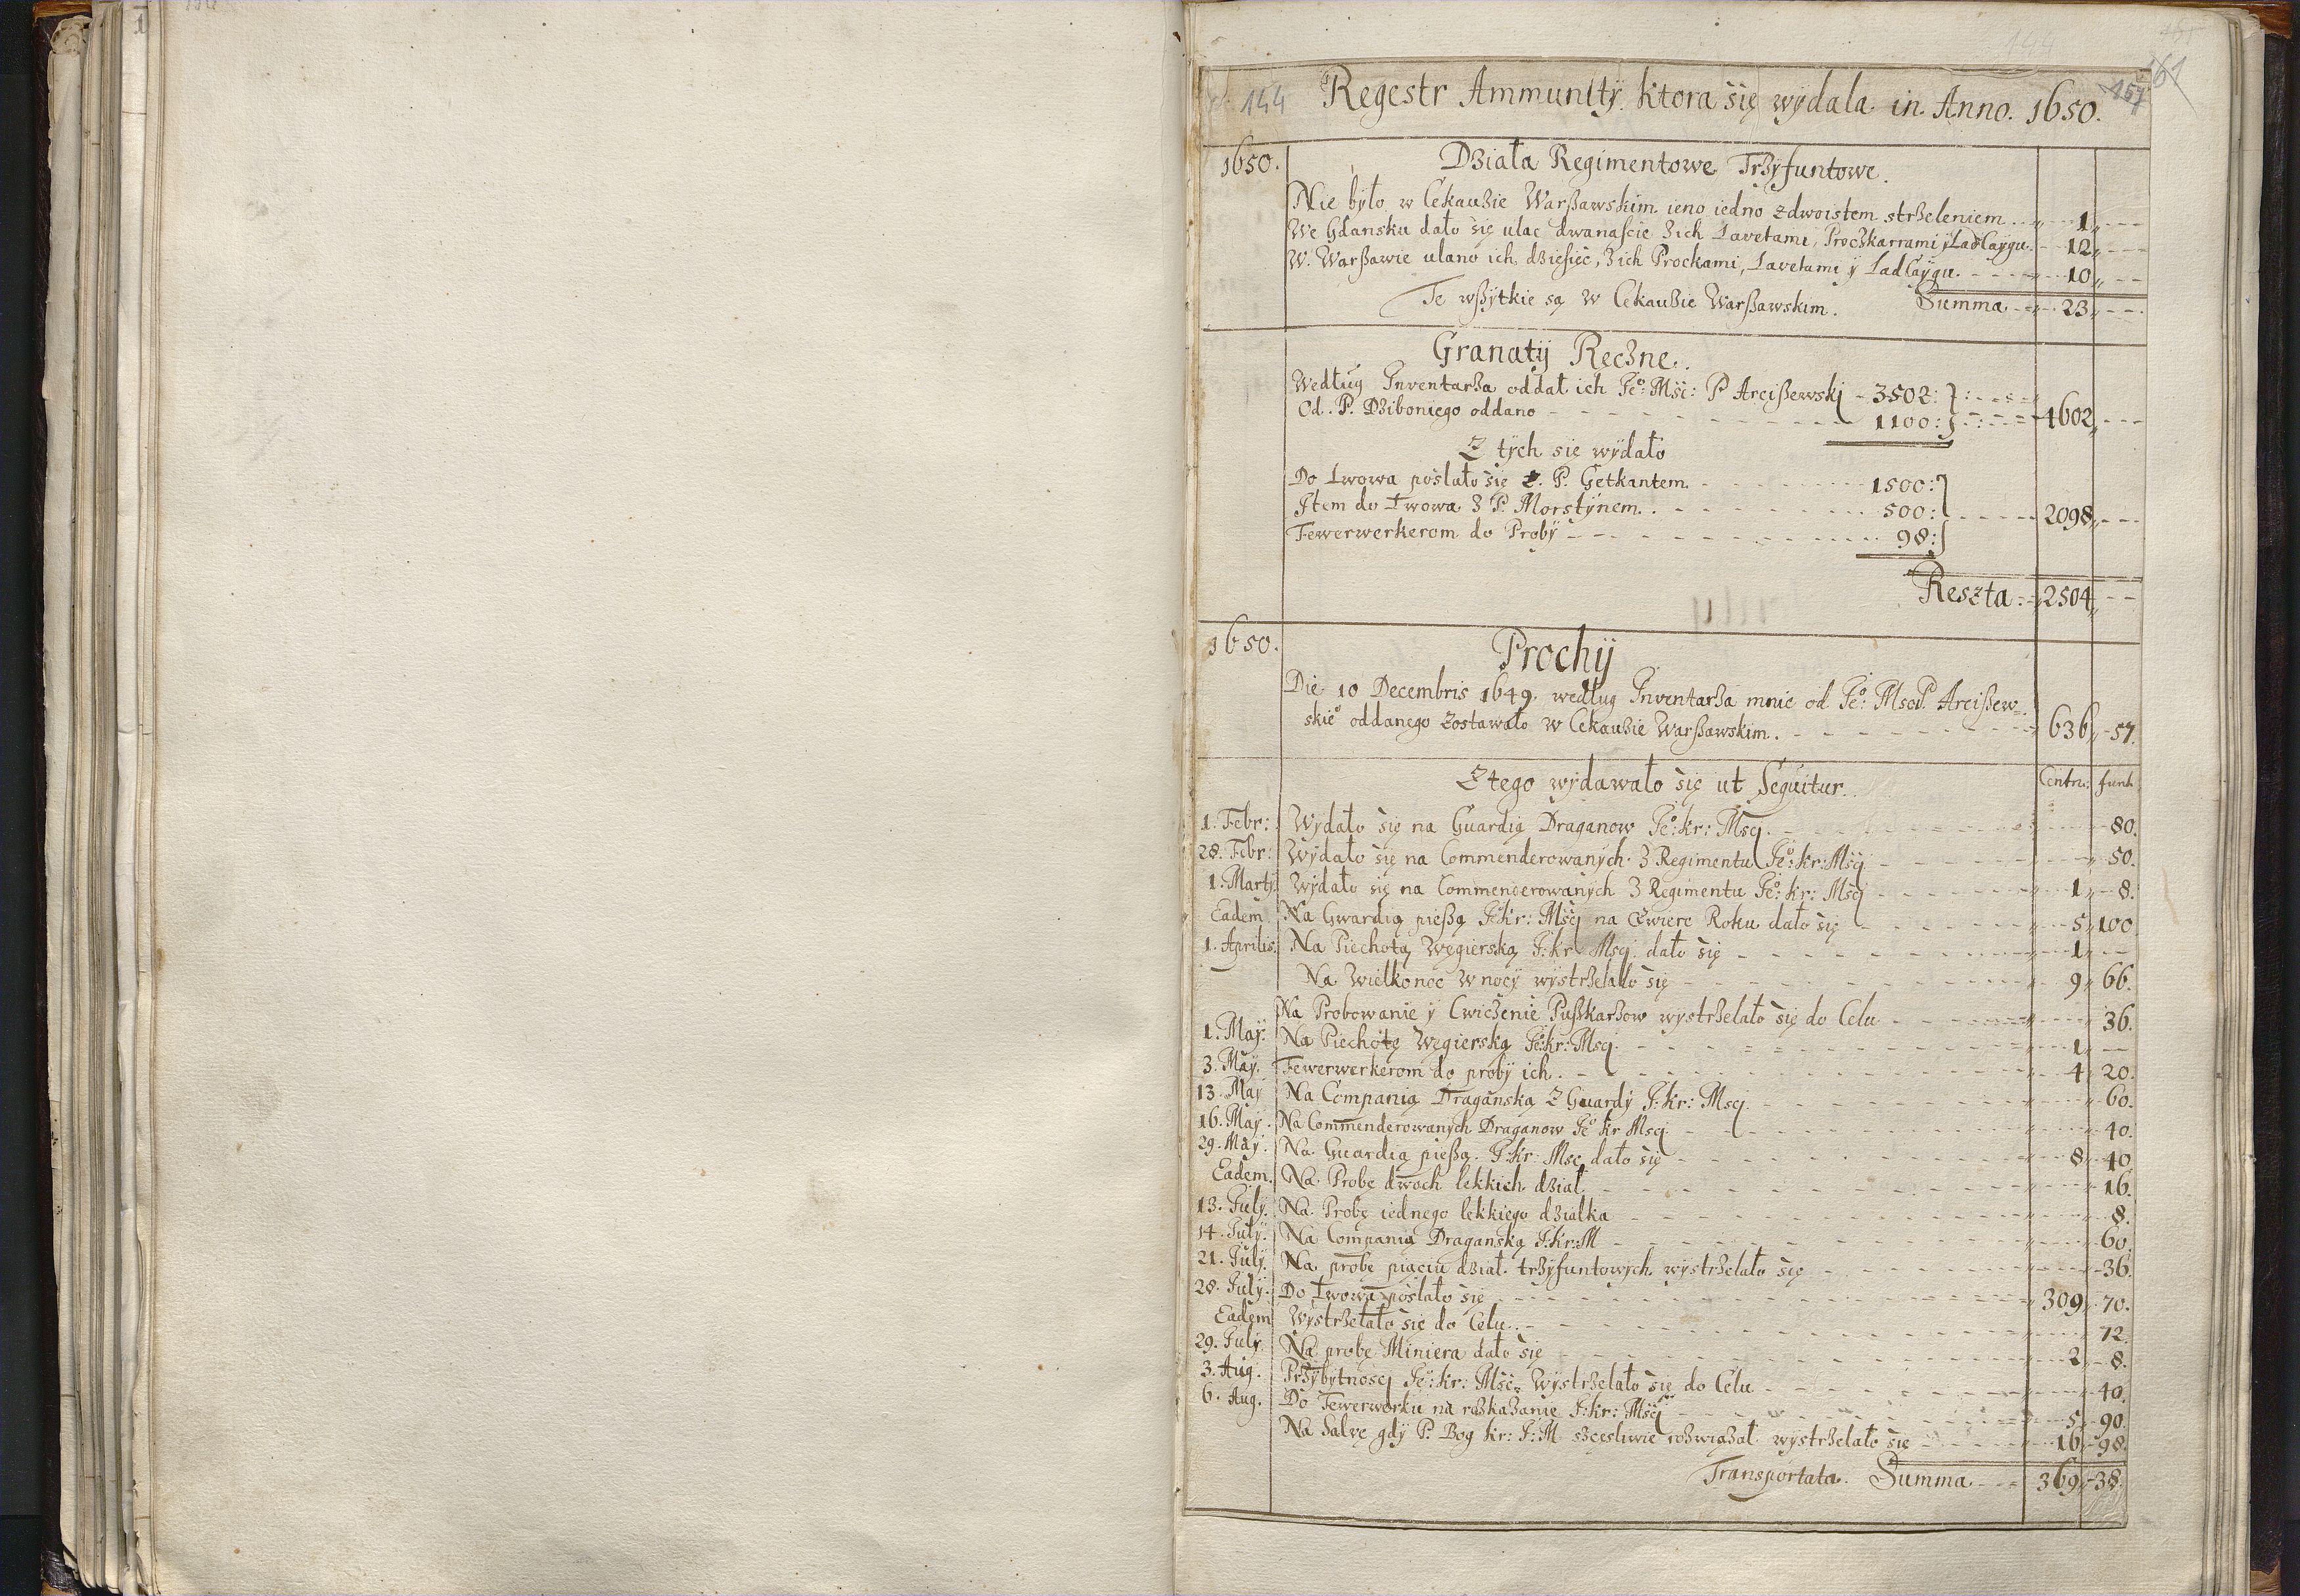 144
144 Regestr Ammunity ktora się wydala in Anno. 1650. 157 161
1650. Działa Regimentowe Trzyfuntowe.
Nie było w Cekauzie Warßawskim ieno iedno zdwoistem strzeleniem 1
We Gdansku dało się ulac dwanascie z ich Lavetami, Proczkarrami y Ladcaygu. 12
W. Warßawie ulano ich dziesięc, z ich Prockami, Lavetami y Ladcaygu. 10
Te wßytkie są w Cekauzie Warßawskim. Summa 23
Granaty Reczne.
Według Inventarza oddał ich Jeº: Msc: P Arcißewskj 3502:
Od. P. Dziboniego oddano 1100: 4602
Z tych się wydało
Do Lwowa posłało się z. P. Getkantem. 1500:
Item do Lwowa z P. Morstynem. 500: 2098
Fewerwerkerom do Proby 98:
Reszta 2504
1650. Prochy
Die 10 Decembris 1649. według Inventarza mnie od Jeº: Msci P. Arcißew-
skieº oddanego zostawało w Cekauzie Warßawskim. 636 57.
Z tego wydawało się ut Sequitur. Centn: funt
1. Febr: Wydało się na Guardią Draganow Jeº: kr: Mscj. 80.
28. Febr: Wydało się na Commenderowanych z Regimentu Jeº: kr: Mscj 50.
1. Marty. Wydało się na Commenderowanych z Regimentu Jeº: kr: Mscj 1 8.
Eadem Na Gwardią pießą J: Kr: Mscj na czwierc Roku dało się 5 100
1. Aprilis. Na Piechotą Węgierską J: kr Mscj. dało się 1
Na Wielkonoc w nocy wystrzelało się 9 66.
Na Probowanie y Cwiczenie Pußkarzow wystrzelało się do Celu 36.
1. May. Na Piechotę Węgierską Jeº: kr: Mscj. 1
3. May. Fewerwerkerom do proby ich. 4 20.
13. May Na Companią Dragańską z Guardy J: kr: Mscj. 60.
16. May. Na Commenderowanych Draganow Jeº kr Mscj 40.
29. May. Na Guardią pießą. J: kr: Msc dało się 8 40
Eadem. Na Probę dwoch lekkich dział. 16.
13. July. Na Probę iednego lekkiego działka 8.
14. July. Na Companią Draganską J: Kr: M 60.
21. July. Na probę piąciu dział trzyfuntowych wystrzelało się 36.
28. July. Do Lwowa posłało się 309 70.
Eadem Wystrzelało się do Celu. 72.
29. July. Na probę Miniera dało się 2 8.
3. Aug. Przybytnoscj Jeº: kr: Msc. wystrzelało się do Celu 40.
6. Aug. Do Fewerwerku na rozkazanie J: kr: Mscj 5 90.
Na Salvę gdy P. Bog kr: J: M szczęsliwie rozwiązał wystrzelało się 16 98.
Transportata. Summa 369 38.